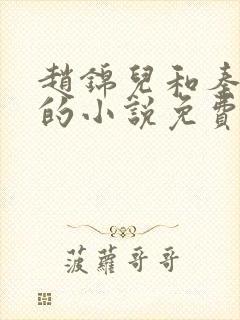 趙錦兒和秦
的小說免費
菠蘿哥哥